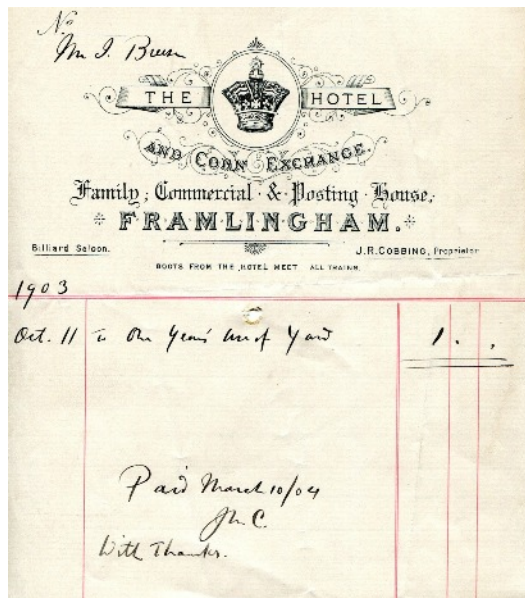 No
Mr I.
THE HOTEL
AND CORN EXCHANGE.
Family, Commercial & Posting House,
FRAMLINGHAM.
Billiard Saloon. J.R. COBBING, Proprietor
BOOTS FROM THE HOTEL MEET ALL TRAINS.
1903
Oct. 11 to One Years use of Yard 1 . .
Paid March 10/04
C.
With Thanks.